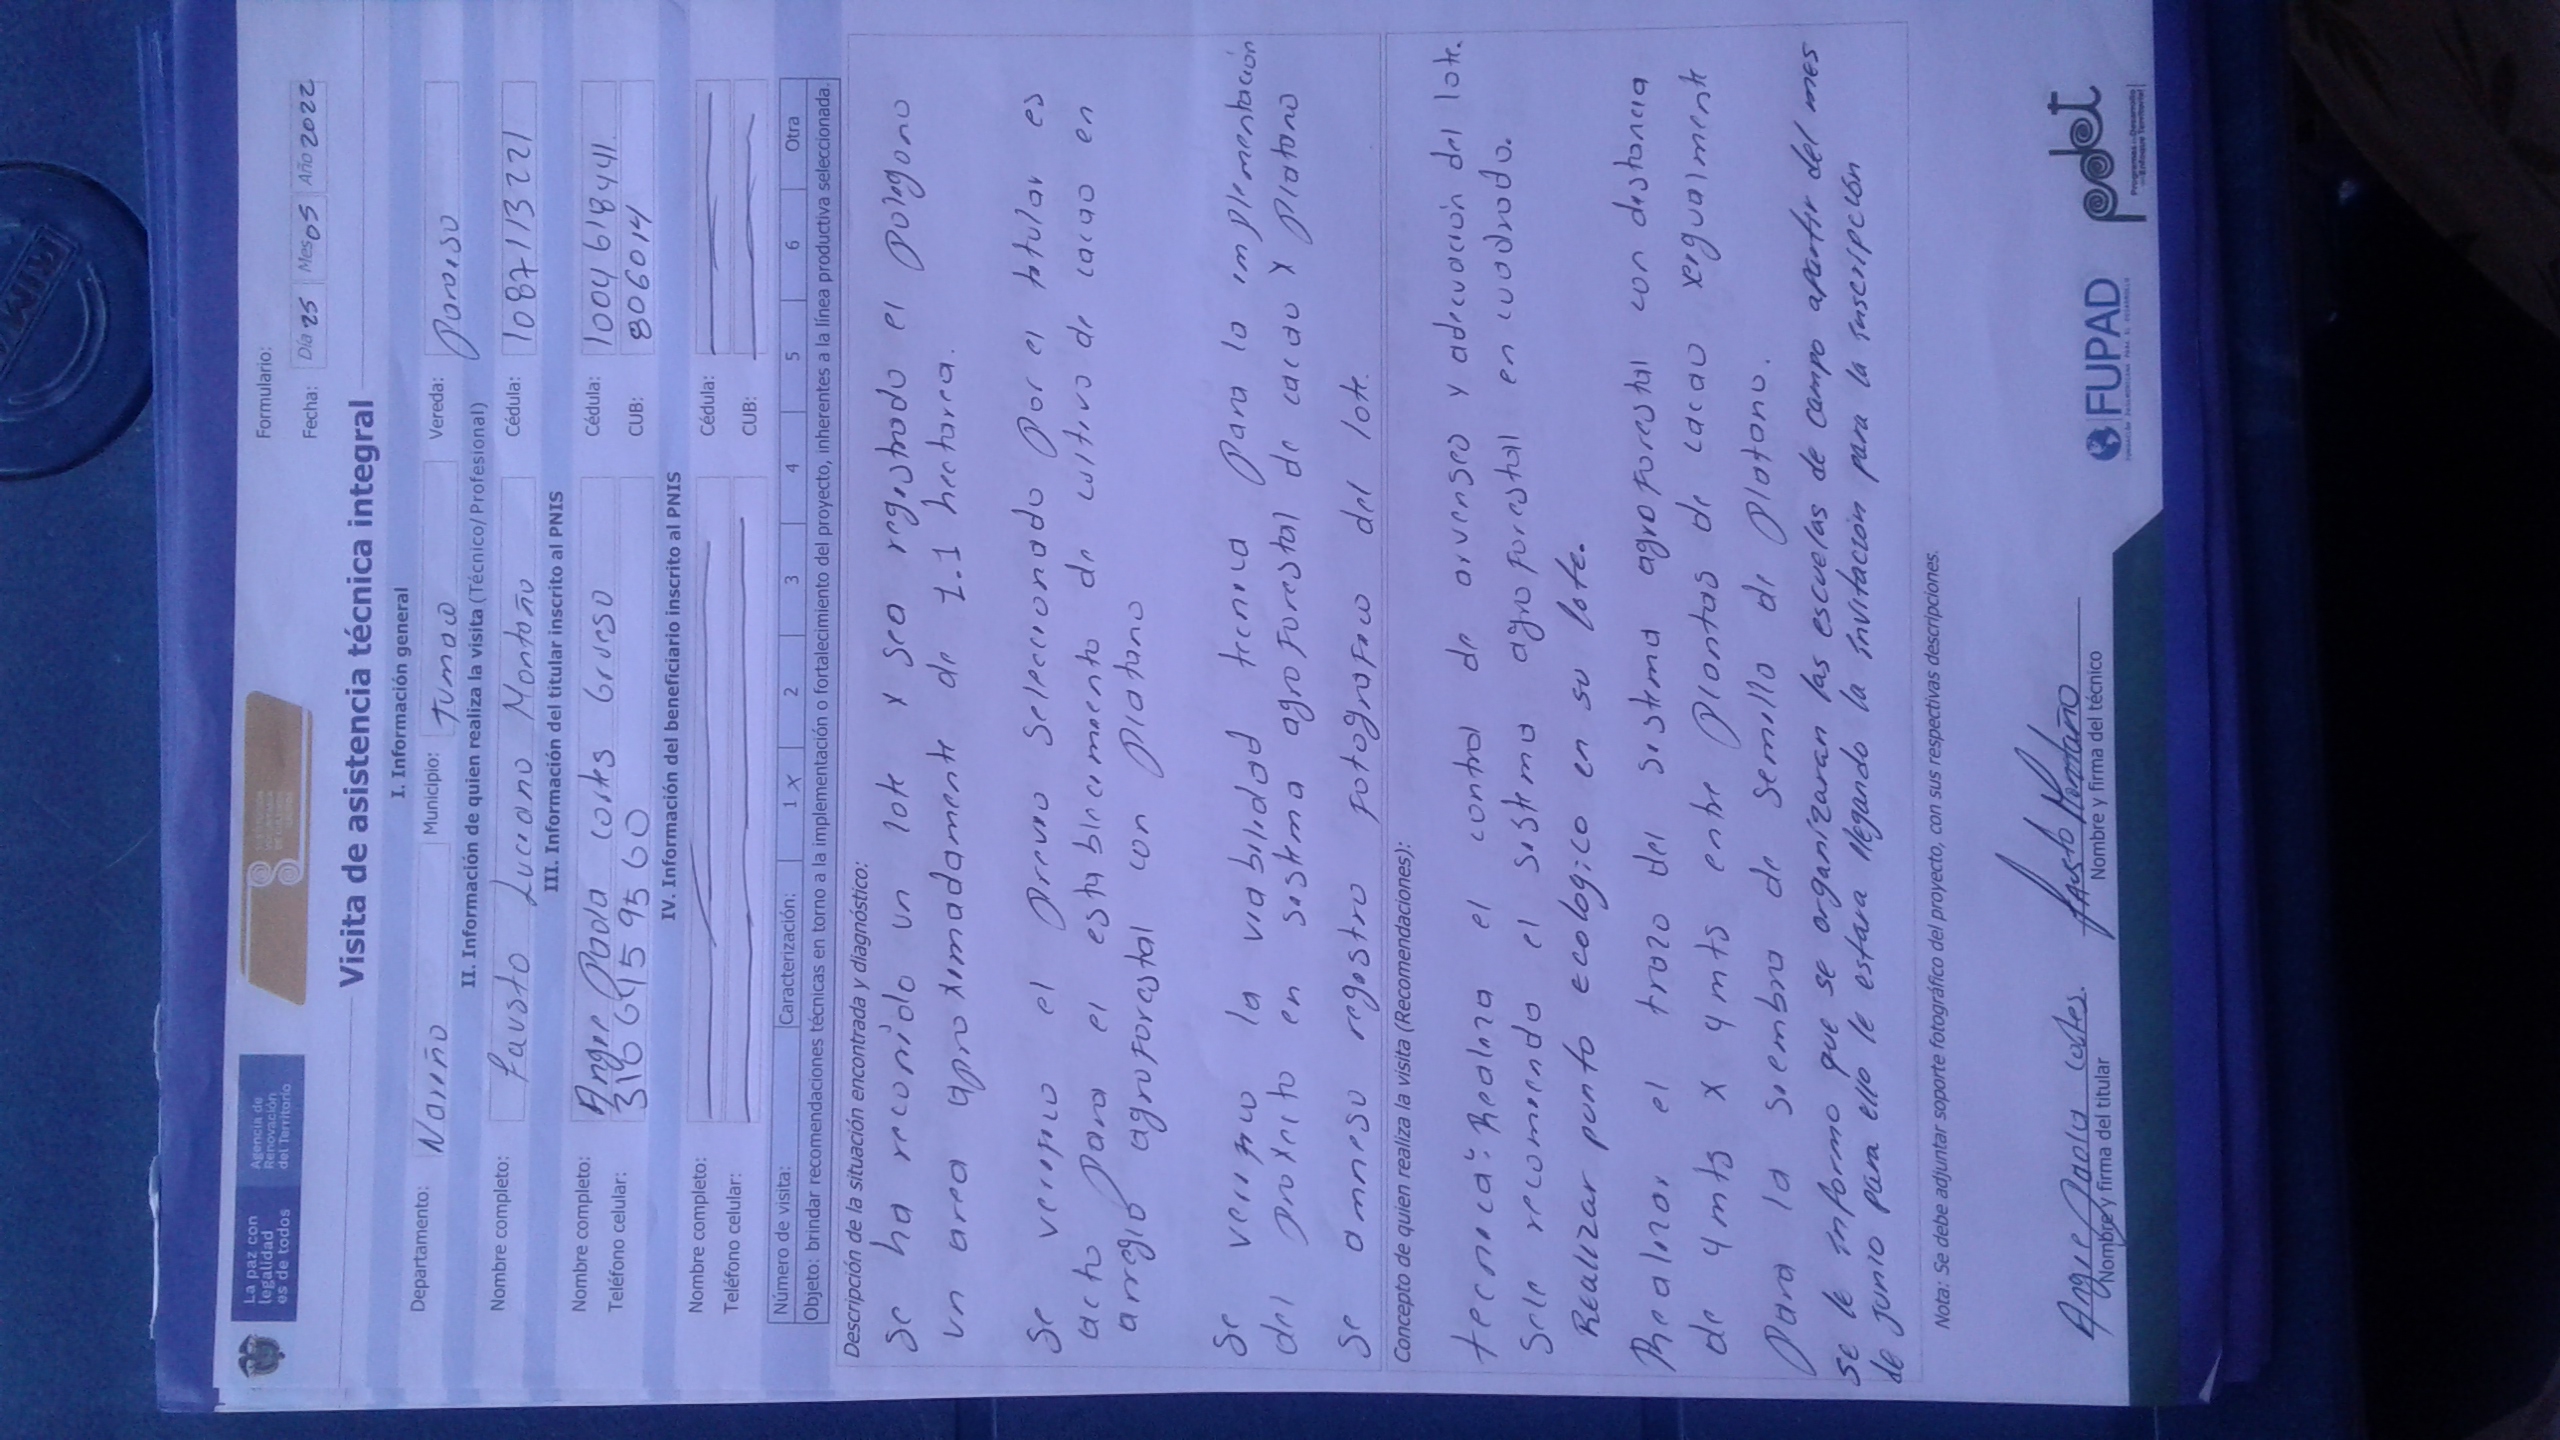 La paz con
legalidad
es de todos
Agencia de
Renovación
del Territorio
Formulario:
Fecha: Día 25 Mes 05 Año 2022
Visita de asistencia técnica integral
I. Información general
Departamento: Nariño Municipio: Tumaco Vereda: Paraiso
II. Información de quien realiza la visita (Técnico/Profesional)
Nombre completo: Fausto Luciano Montaño Cédula: 1087113221
III. Información del titular inscrito al PNIS
Nombre completo: Angie Paola cortes Grueso Cédula: 1004618441.
Teléfono celular: 3166159560 CUB: 806014
IV. Información del beneficiario inscrito al PNIS
Nombre completo: Cédula:
Teléfono celular: CUB:
Número de visita: Caracterización: 1 X 2 3 4 5 6 Otra
Objeto: brindar recomendaciones técnicas en torno a la implementación o fortalecimiento del proyecto, inherentes a la línea productiva seleccionada.
Descripción de la situación encontrada y diagnóstico:
Se ha recorrido un lote y sea registrado el poligono
un area aproximadamente de 1.1 hectarea.
Se verifico el previo seleccionado por el titular es
acto para el establecimiento de cultivo de cacao en
arreglo agroforestal con platano
Se verifico la viabilidad tecnica para la implementación
del proyecto en sistema agroforestal de cacao y platano
Se anneso registro fotografico del lote.
Concepto de quien realiza la visita (Recomendaciones):
tecnica: Realiza el control de arvenses y adecuación del lote.
Sele recomienda el sistema agroforestal en cuadrado.
Realizar punto ecologico en su lote.
Realizar el trazo del sistema agroforestal con distancia
de 4 mts x 4 mts entre plantas de cacao y igualmente
para la siembra de semilla de platano.
Se le informo que se organizaran las escuelas de campo apartir del mes
de junio para ello le estara llegando la invitación para la inscripción
Nota: Se debe adjuntar soporte fotográfico del proyecto, con sus respectivas descripciones.
Angie Paola cortes. Fausto Montaño
Nombre y firma del titular Nombre y firma del técnico
FUPAD
pdet
Programas de Desarrollo
con Enfoque Territorial